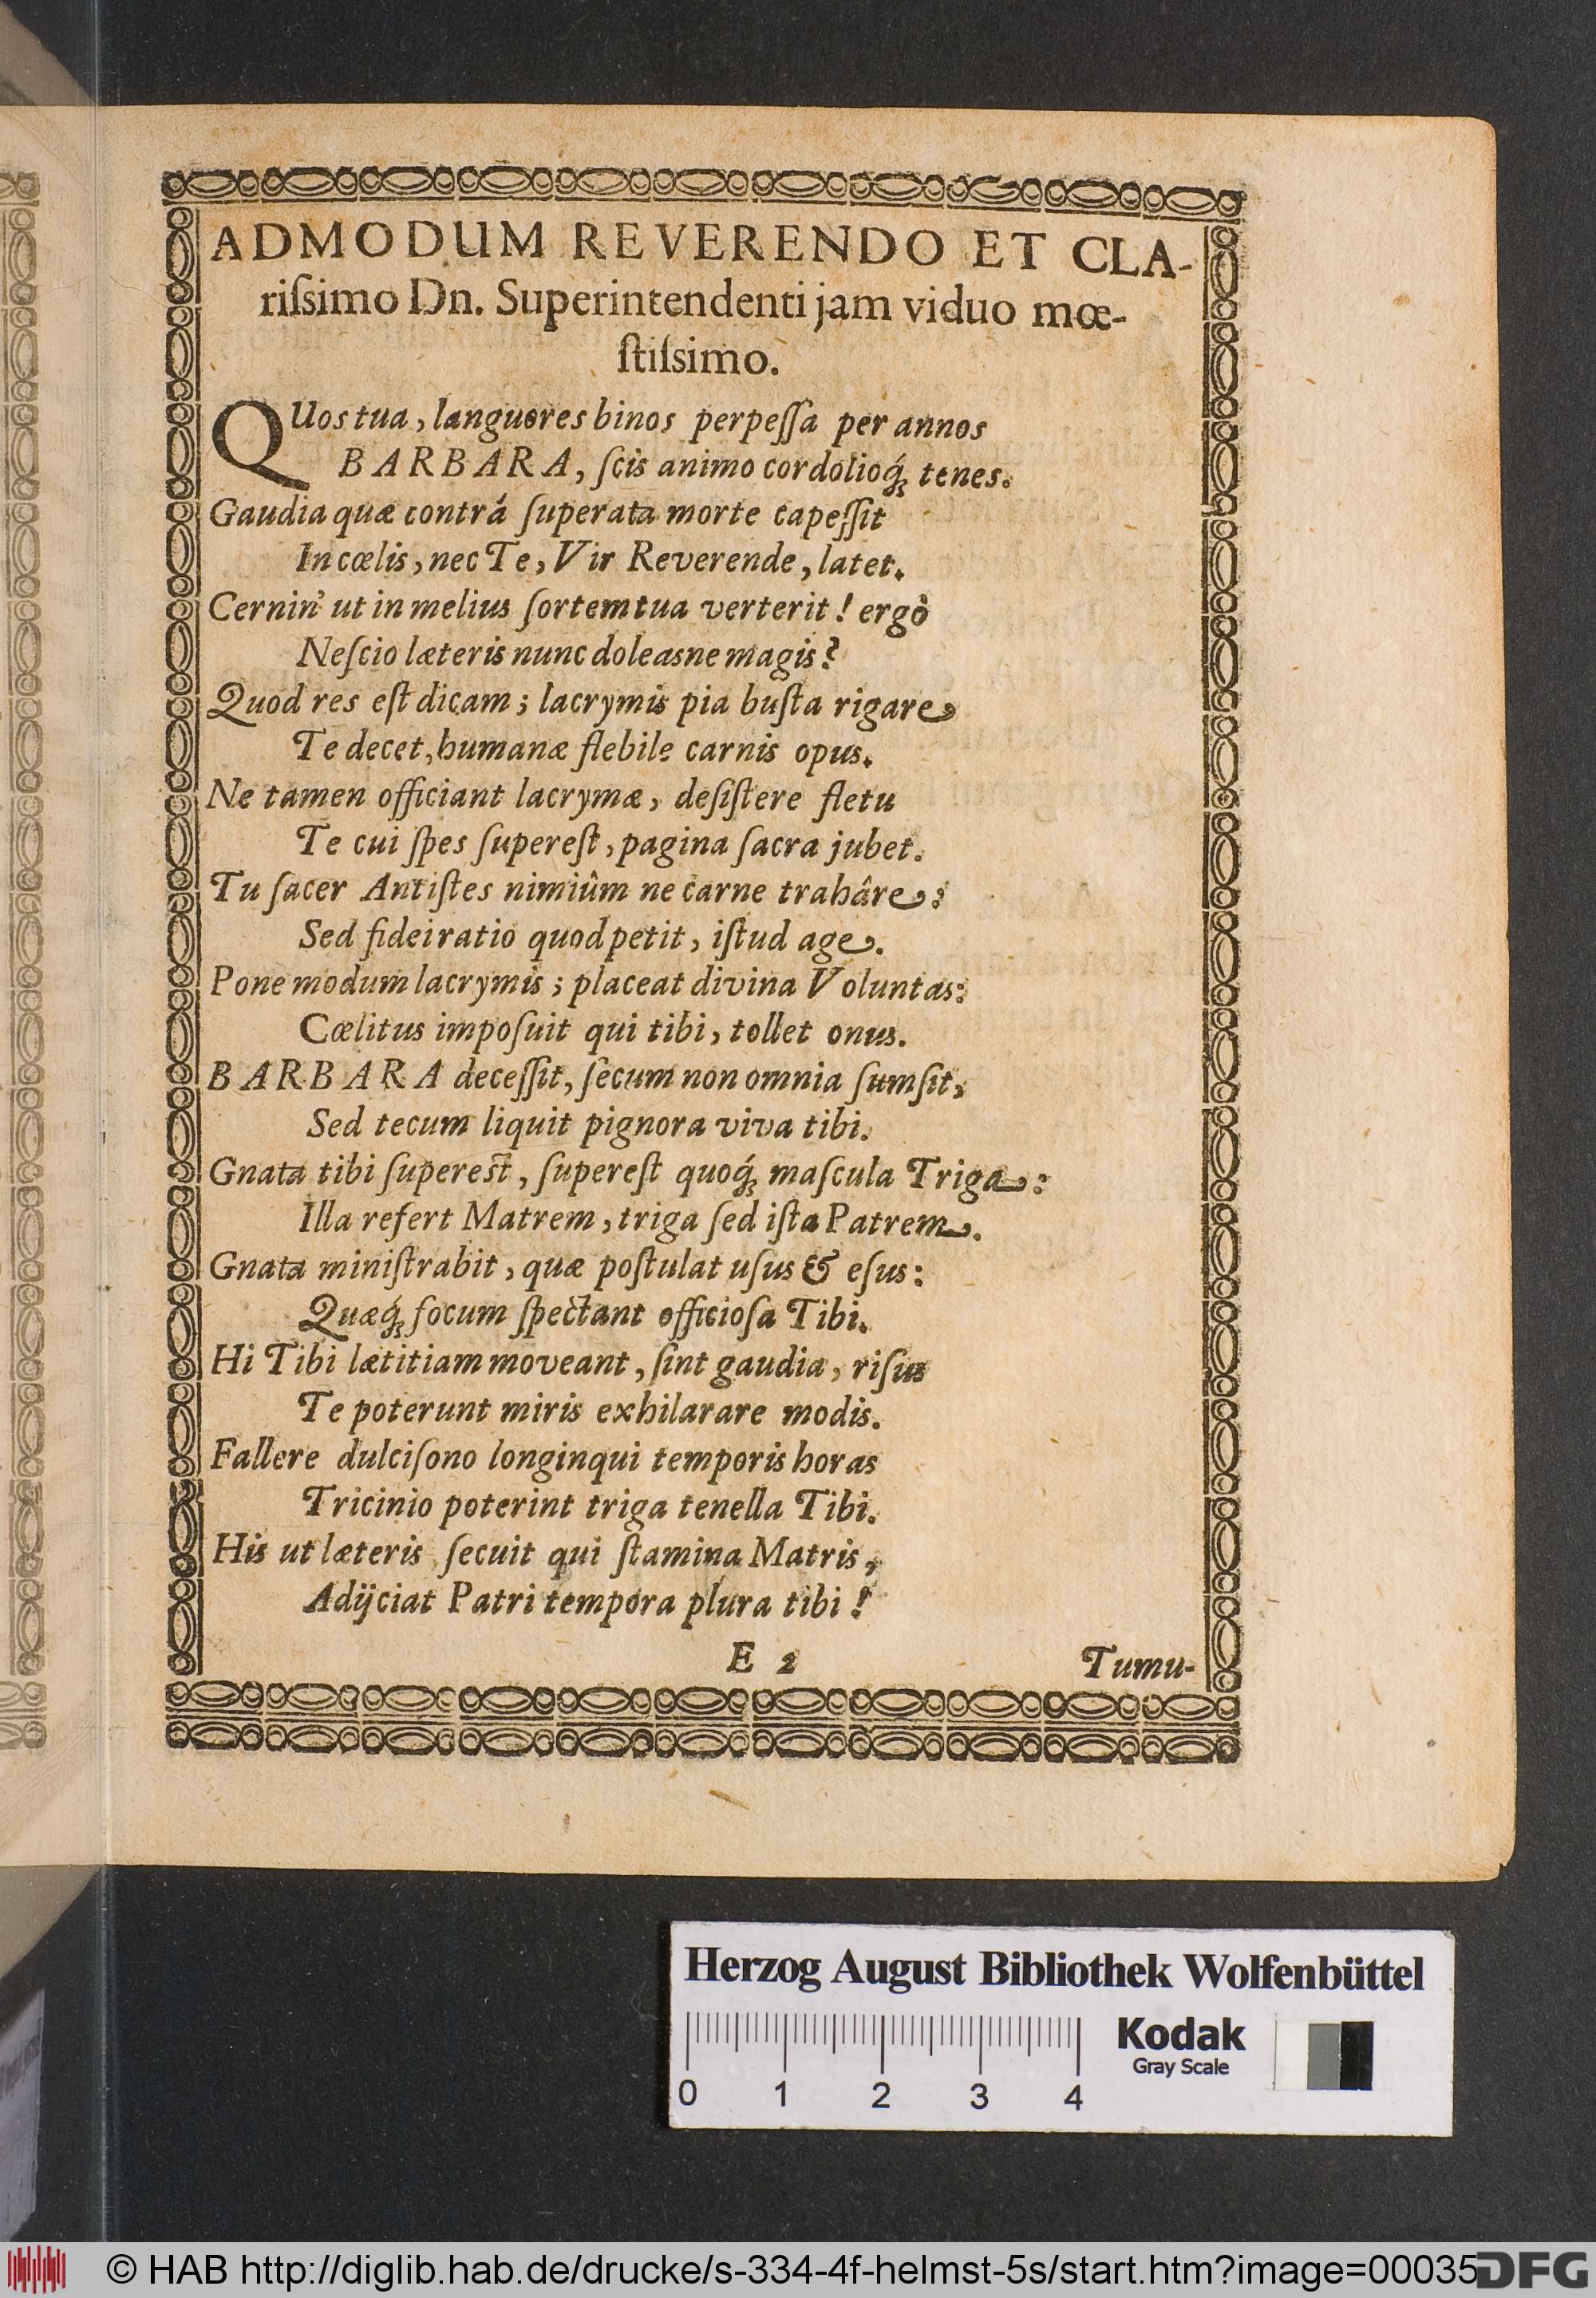 ADMODUM REVERENDO ET CLA-
riſsimo Dn. Superintendenti jam viduo mœ-
ſtiſsimo.
QUos tua, languores binos perpeſſa per annos
BARBARA, ſcis animo cordolioq́; tenes.
Gaudia quæ contrá ſuperata morte capeſſit
In cœlis, nec Te, Vir Reverende, latet.
Cernin' ut in melius ſortem tua verterit! ergò
Neſcio læteris nunc doleasne magis?
Quod res eſt dicam; lacrymis pia buſta rigare
Te decet, humanæ flebile carnis opus.
Ne tamen officiant lacrymæ, deſiſtere fletu
Te cui ſpes ſupereſt, pagina ſacra jubet.
Tu ſacer Antiſtes nimiûm ne carne trahâre:
Sed fidei ratio quod petit, iſtud age.
Pone modum lacrymis; placeat divina Voluntas:
Cœlitus impoſuit qui tibi, tollet onus.
BARBARA deceſſit, ſecum non omnia ſumſit,
Sed tecum liquit pignora viva tibi.
Gnata tibi ſupereſt, ſupereſt quoq́; maſcula Triga:
Illa refert Matrem, triga ſed iſta Patrem.
Gnata miniſtrabit, quæ poſtulat uſus & eſus:
Quæq́; focum ſpectant officioſa Tibi.
Hi Tibi lætitiam moveant, ſint gaudia, riſus
Te poterunt miris exhilarare modis.
Fallere dulciſono longinqui temporis horas
Tricinio poterint triga tenella Tibi.
His ut læteris, ſecuit qui ſtamina Matris,
Adijciat Patri tempora plura tibi!
E 2 Tumu-
Herzog August Bibliothek Wolfenbüttel
Kodak
Gray Scale
0 1 2 3 4
© HAB http://diglib.hab.de/drucke/s-334-4f-helmst-5s/start.htm?image=00035
DFG